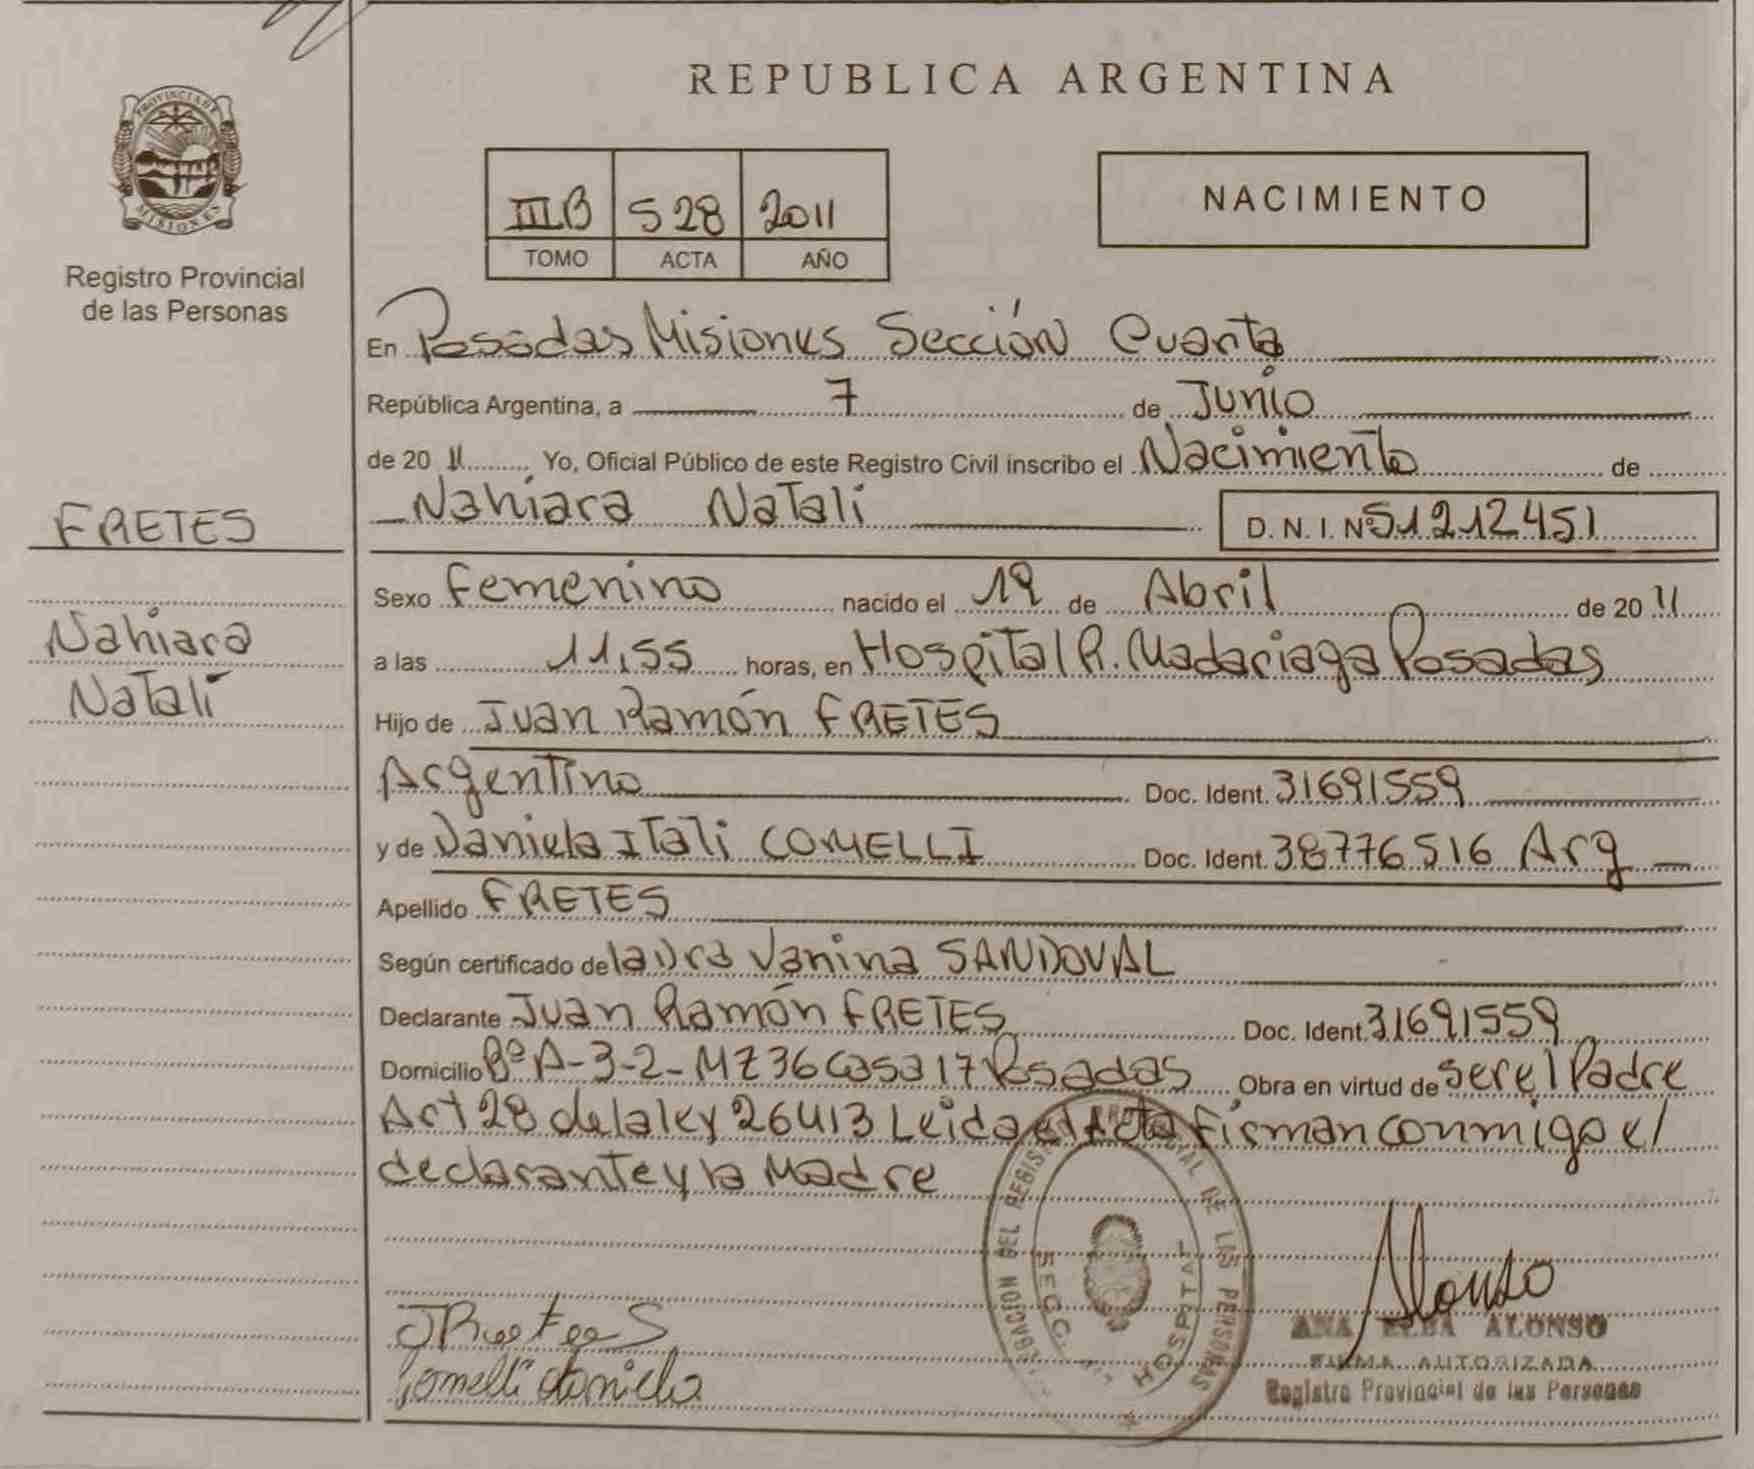 PROVINCIA DE
MISIONES
Registro Provincial
de las Personas
FRETES
Nahiara
Natali
REPUBLICA ARGENTINA
III B 528 2011
TOMO ACTA AÑO
NACIMIENTO
En Posadas Misiones Sección Cuarta
República Argentina, a 7 de Junio
de 20 11 Yo, Oficial Público de este Registro Civil inscribo el Nacimiento de
Nahiara Natali D. N. I. Nº 51212451
Sexo Femenino nacido el 19 de Abril de 20 11
a las 11,55 horas, en Hospital R. Madariaga Posadas
Hijo de Juan Ramón FRETES
Argentino Doc. Ident. 31691559
y de Daniela Itali COMELLI Doc. Ident. 38776516 Arg
Apellido FRETES
Según certificado de laura Vanina SANDOVAL
Declarante Juan Ramón FRETES Doc. Ident. 31691559
Domicilio Bº A-3-2- MZ 36 Casa 17 Posadas Obra en virtud de ser el Padre
Art 28 de la ley 26413 Leida el Acta Firman conmigo el
declarante y la Madre
DEL REGISTRO DE LAS PERSONAS
SECC. HOSPITAL
Alonso
ANA ELBA ALONSO
FIRMA AUTORIZADA
Registro Provincial de las Personas
Comelli daniela